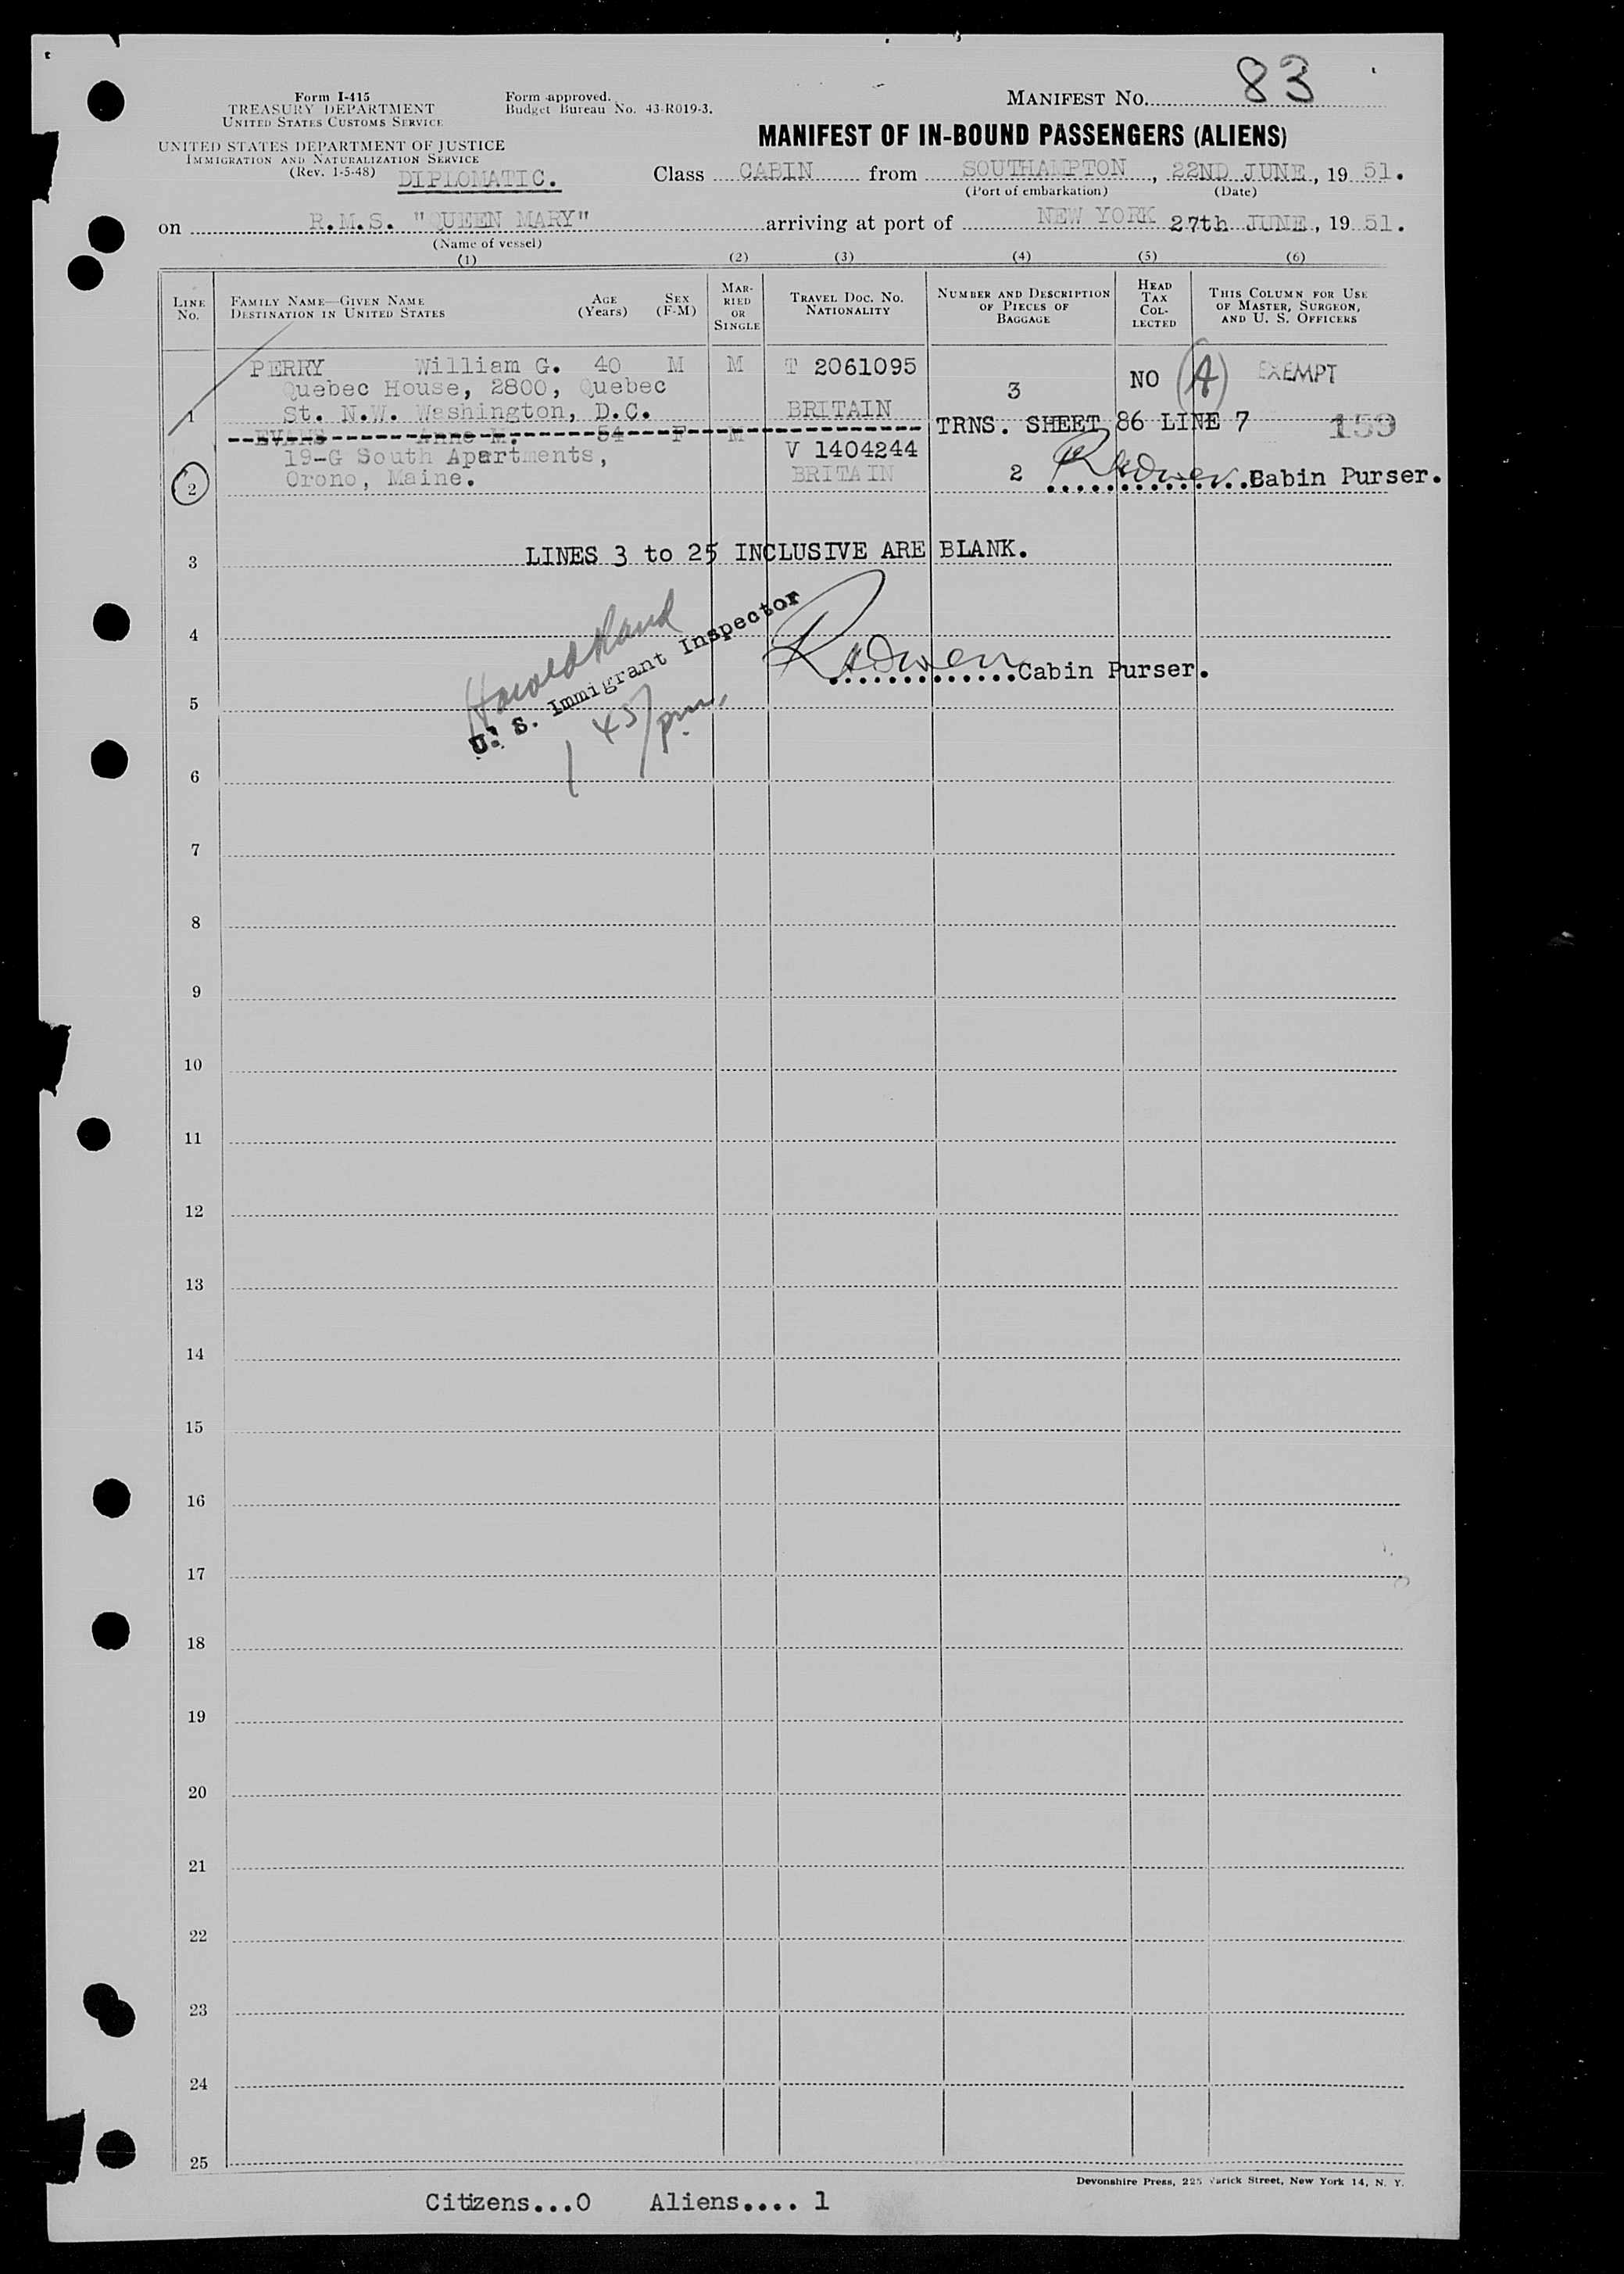 Form I-415
TREASURY DEPARTMENT
UNITED STATES CUSTOMS SERVICE
UNITED STATES DEPARTMENT OF JUSTICE
IMMIGRATION AND NATURALIZATION SERVICE
(Rev. 1-5-48)
DIPLOMATIC.
Form approved.
Budget Bureau No. 43-R019-3.
MANIFEST No. 83
MANIFEST OF IN-BOUND PASSENGERS (ALIENS)
Class CABIN from SOUTHAMPTON, 22ND JUNE, 19 51.
(Port of embarkation) (Date)
on R.M.S. "QUEEN MARY" arriving at port of NEW YORK 27th JUNE, 19 51.
(Name of vessel)
(1) (2) (3) (4) (5) (6)
LINE No.
FAMILY NAME—GIVEN NAME
DESTINATION IN UNITED STATES
AGE (Years)
SEX (F-M)
MARRIED OR SINGLE
TRAVEL DOC. NO.
NATIONALITY
NUMBER AND DESCRIPTION OF PIECES OF BAGGAGE
HEAD TAX COLLECTED
THIS COLUMN FOR USE OF MASTER, SURGEON, AND U. S. OFFICERS
PERRY William G. 40 M M T 2061095 NO (A) EXEMPT
Quebec House, 2800, Quebec 3
1 St. N.W. Washington, D.C. BRITAIN
EVANS Anne M. 54 F M TRNS. SHEET 86 LINE 7 159
19-G South Apartments, V 1404244
2 Orono, Maine. BRITAIN 2 Cabin Purser.
3 LINES 3 to 25 INCLUSIVE ARE BLANK.
Harold Rand
U. S. Immigrant Inspector
1 45/pm
4
Cabin Purser.
5
6
7
8
9
10
11
12
13
14
15
16
17
18
19
20
21
22
23
24
25
Devonshire Press, 225 Varick Street, New York 14, N. Y.
Citizens...0 Aliens.... 1